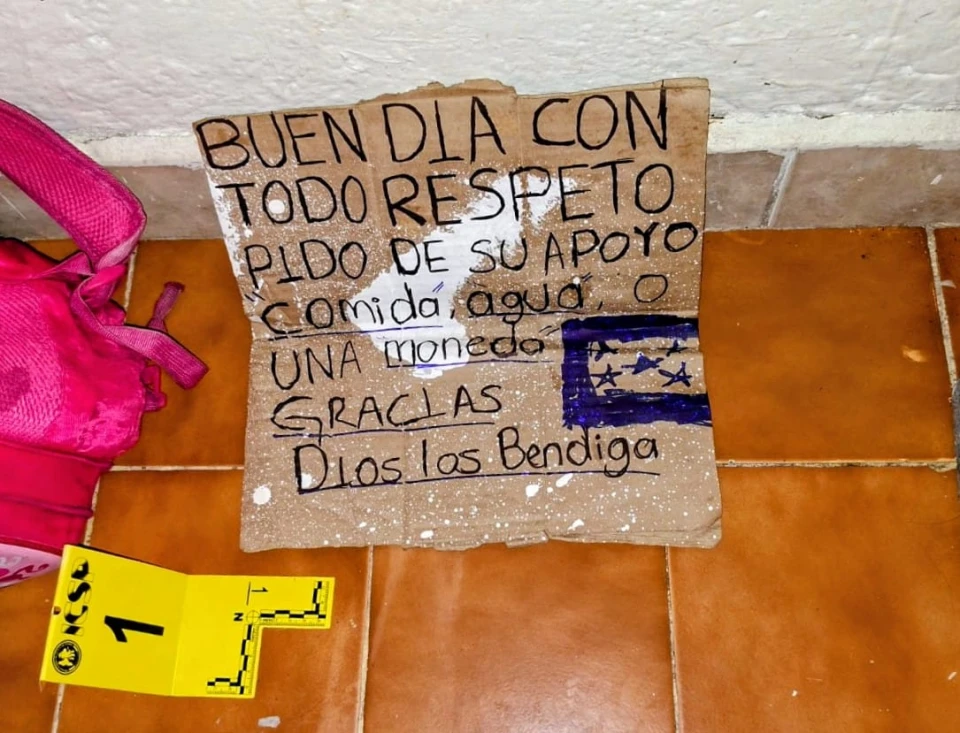 BUEN DIA CON
TODO RESPETO
PIDO DE SU APOYO
"comida", "agua", O
UNA "moneda"
GRACIAS
DIos los Bendiga
ICSP
1
1
N